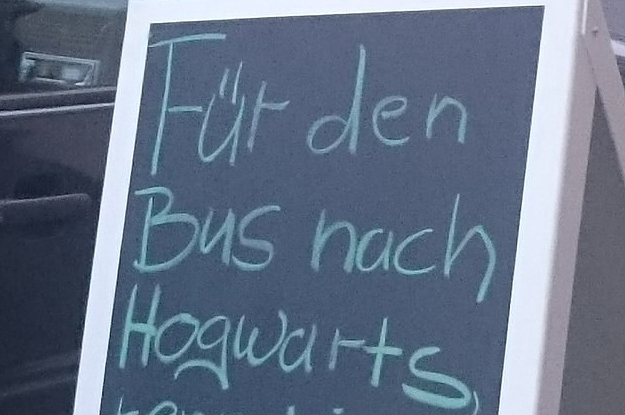 Für den
Bus nach
Hogwarts,